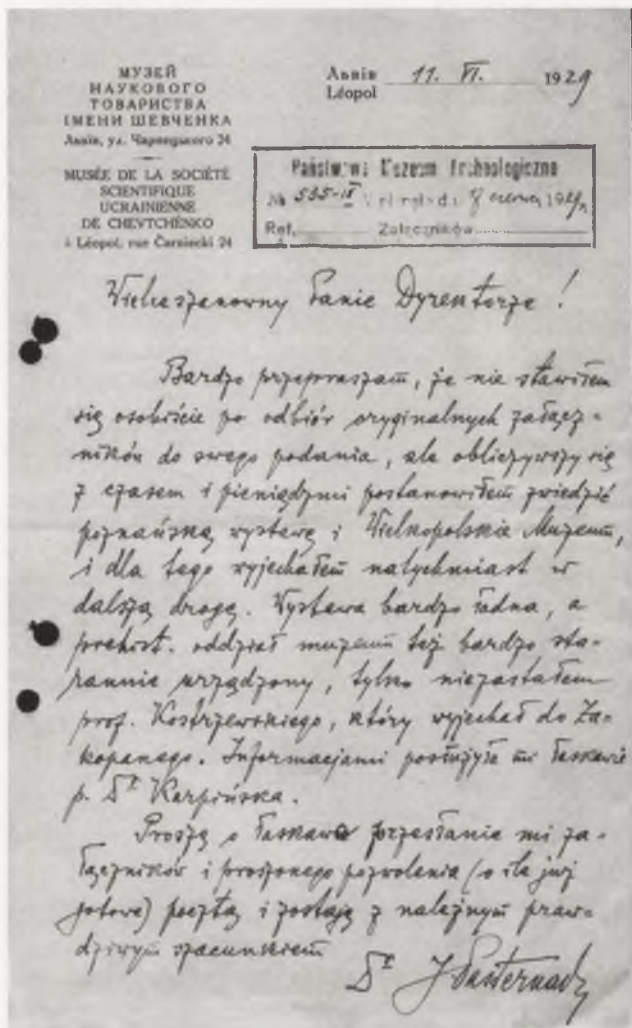 МУЗЕЙ
НАУКОВОГО
ТОВАРИСТВА
ІМЕНИ ШЕВЧЕНКА
Львів, ул. Чарнецького 24
MUSÉE DE LA SOCIÉTÉ
SCIENTIFIQUE
UCRAINIENNE
DE CHEVTCHÉNKO
à Léopol, rue Čarniecki 24
Львів 11. VI. 1929
Léopol
Państwowe Muzeum Archeologiczne
№ 535-IX czerwca 1929 r.
Ref. Załączników
Wielceszanowny Panie Dyrektorze!
Bardzo przepraszam, że nie stawiłem
się osobiście po odbiór oryginalnych załącz-
ników do swego podania, ale obliczywszy się
z czasem i pieniądzmi postanowiłem zwiedzić
poznańską wystawę i Wielkopolskie Muzeum,
i dla tego wyjechałem natychmiast w
dalszą drogę. Wystawa bardzo ładna, a
prehist. oddział muzeum też bardzo sta-
rannie urządzony, tylko niezastałem
prof. Kostrzewskiego, który wyjechał do Za-
kopanego. Informacjami posłużyła mi łaskawie
p. Dr Karpińska.
Proszę o łaskawe przesłanie mi za-
łączników i proszonego pozwolenia (o ile już
gotowe) pocztą i zostaję z należnym praw-
dziwym szacunkiem
Dr J Pasternak